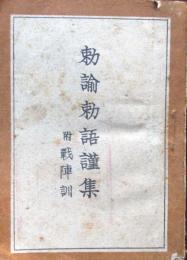 勅諭勅語謹集
附戰陣訓